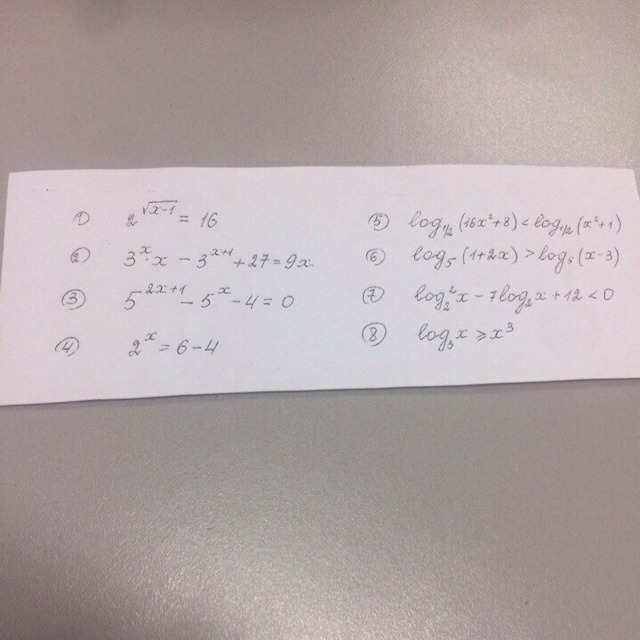 ① 2^√(x-1) = 16
② 3^x · x - 3^(x+1) + 27 = 9x
③ 5^(2x+1) - 5^x - 4 = 0
④ 2^x = 6 - 4
⑤ log_1/2 (16x² + 8) < log_1/2 (x² + 1)
⑥ log_5 (1 + 2x) > log_5 (x - 3)
⑦ log_2² x - 7 log_2 x + 12 < 0
⑧ log_3 x ⩾ x³